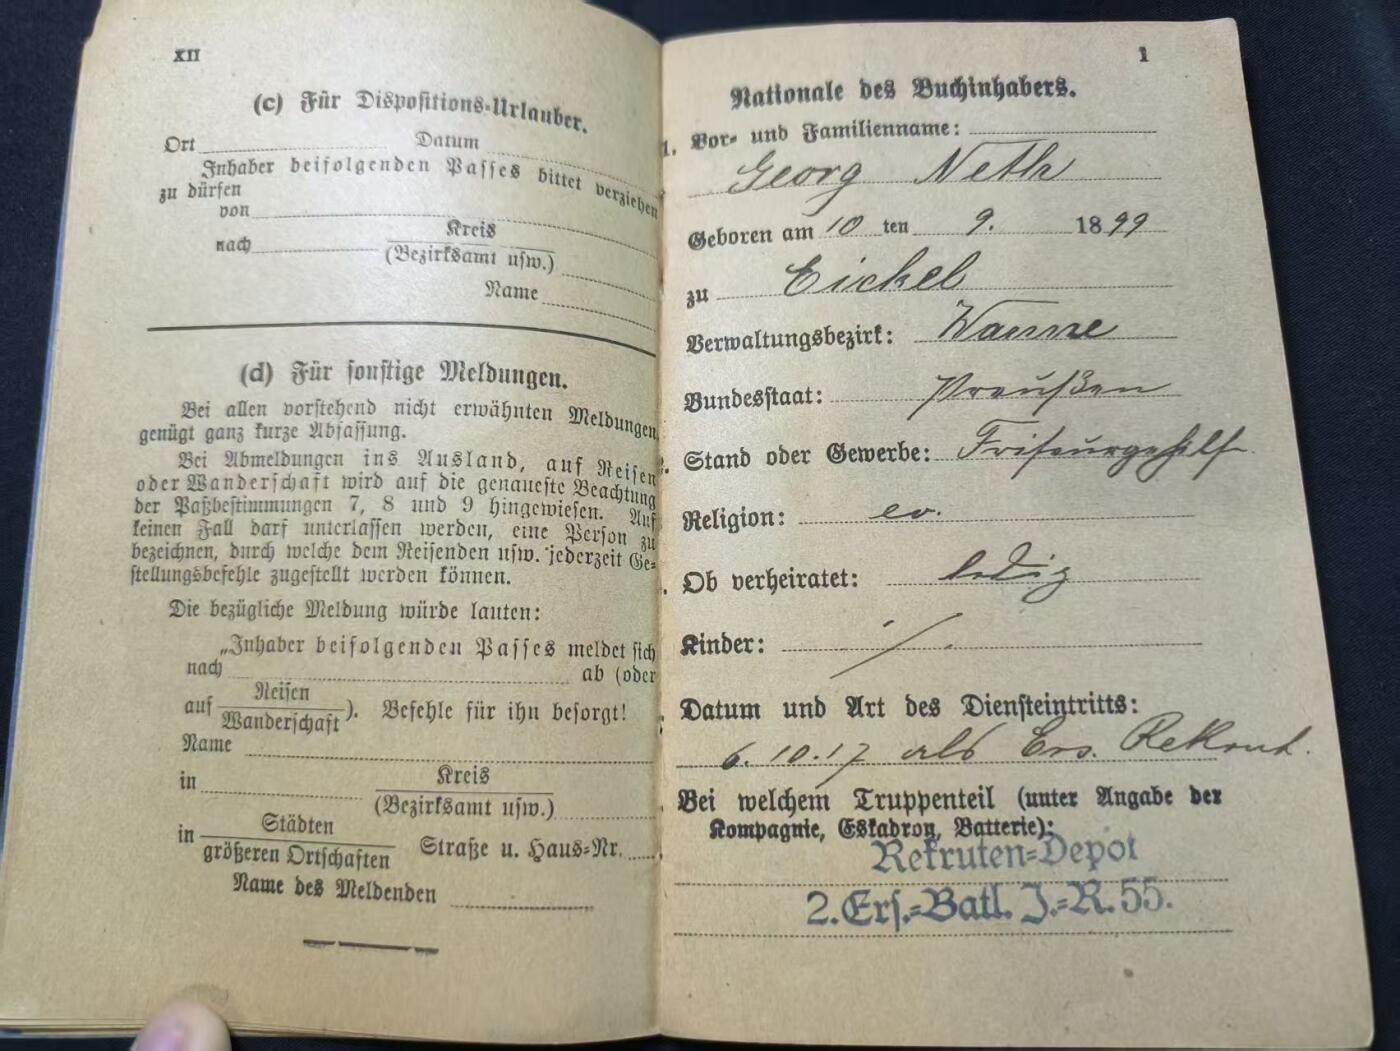 XII
(c) Für Dispositions-Urlauber.
Ort Datum
Inhaber beifolgenden Passes bittet verziehen
zu dürfen
von
nach Kreis
(Bezirksamt usw.)
Name
(d) Für sonstige Meldungen.
Bei allen vorstehend nicht erwähnten Meldungen
genügt ganz kurze Abfassung.
Bei Abmeldungen ins Ausland, auf Reisen
oder Wanderschaft wird auf die genaueste Beachtung
der Paßbestimmungen 7, 8 und 9 hingewiesen. Auf
keinen Fall darf unterlassen werden, eine Person zu
bezeichnen, durch welche dem Reisenden usw. jederzeit Ge-
stellungsbefehle zugestellt werden können.
Die bezügliche Meldung würde lauten:
„Inhaber beifolgenden Passes meldet sich
nach ab (oder
auf Reisen
Wanderschaft). Befehle für ihn besorgt!
Name
in Kreis
(Bezirksamt usw.)
in Städten
größeren Ortschaften Straße u. Haus-Nr.
Name des Meldenden
1
Nationale des Buchinhabers.
1. Vor- und Familienname:
Georg Neth
Geboren am 10 ten 9. 1899
zu Eickel
Verwaltungsbezirk: Wanne
Bundesstaat: Preußen
Stand oder Gewerbe: Friseurgehilf
Religion: ev.
Ob verheiratet: ledig
Kinder: ./.
Datum und Art des Diensteintritts:
6.10.17 als Ers. Rekrut.
Bei welchem Truppenteil (unter Angabe der
Kompagnie, Eskadron, Batterie):
Rekruten-Depot
2. Ers.-Batl. J.-R. 55.